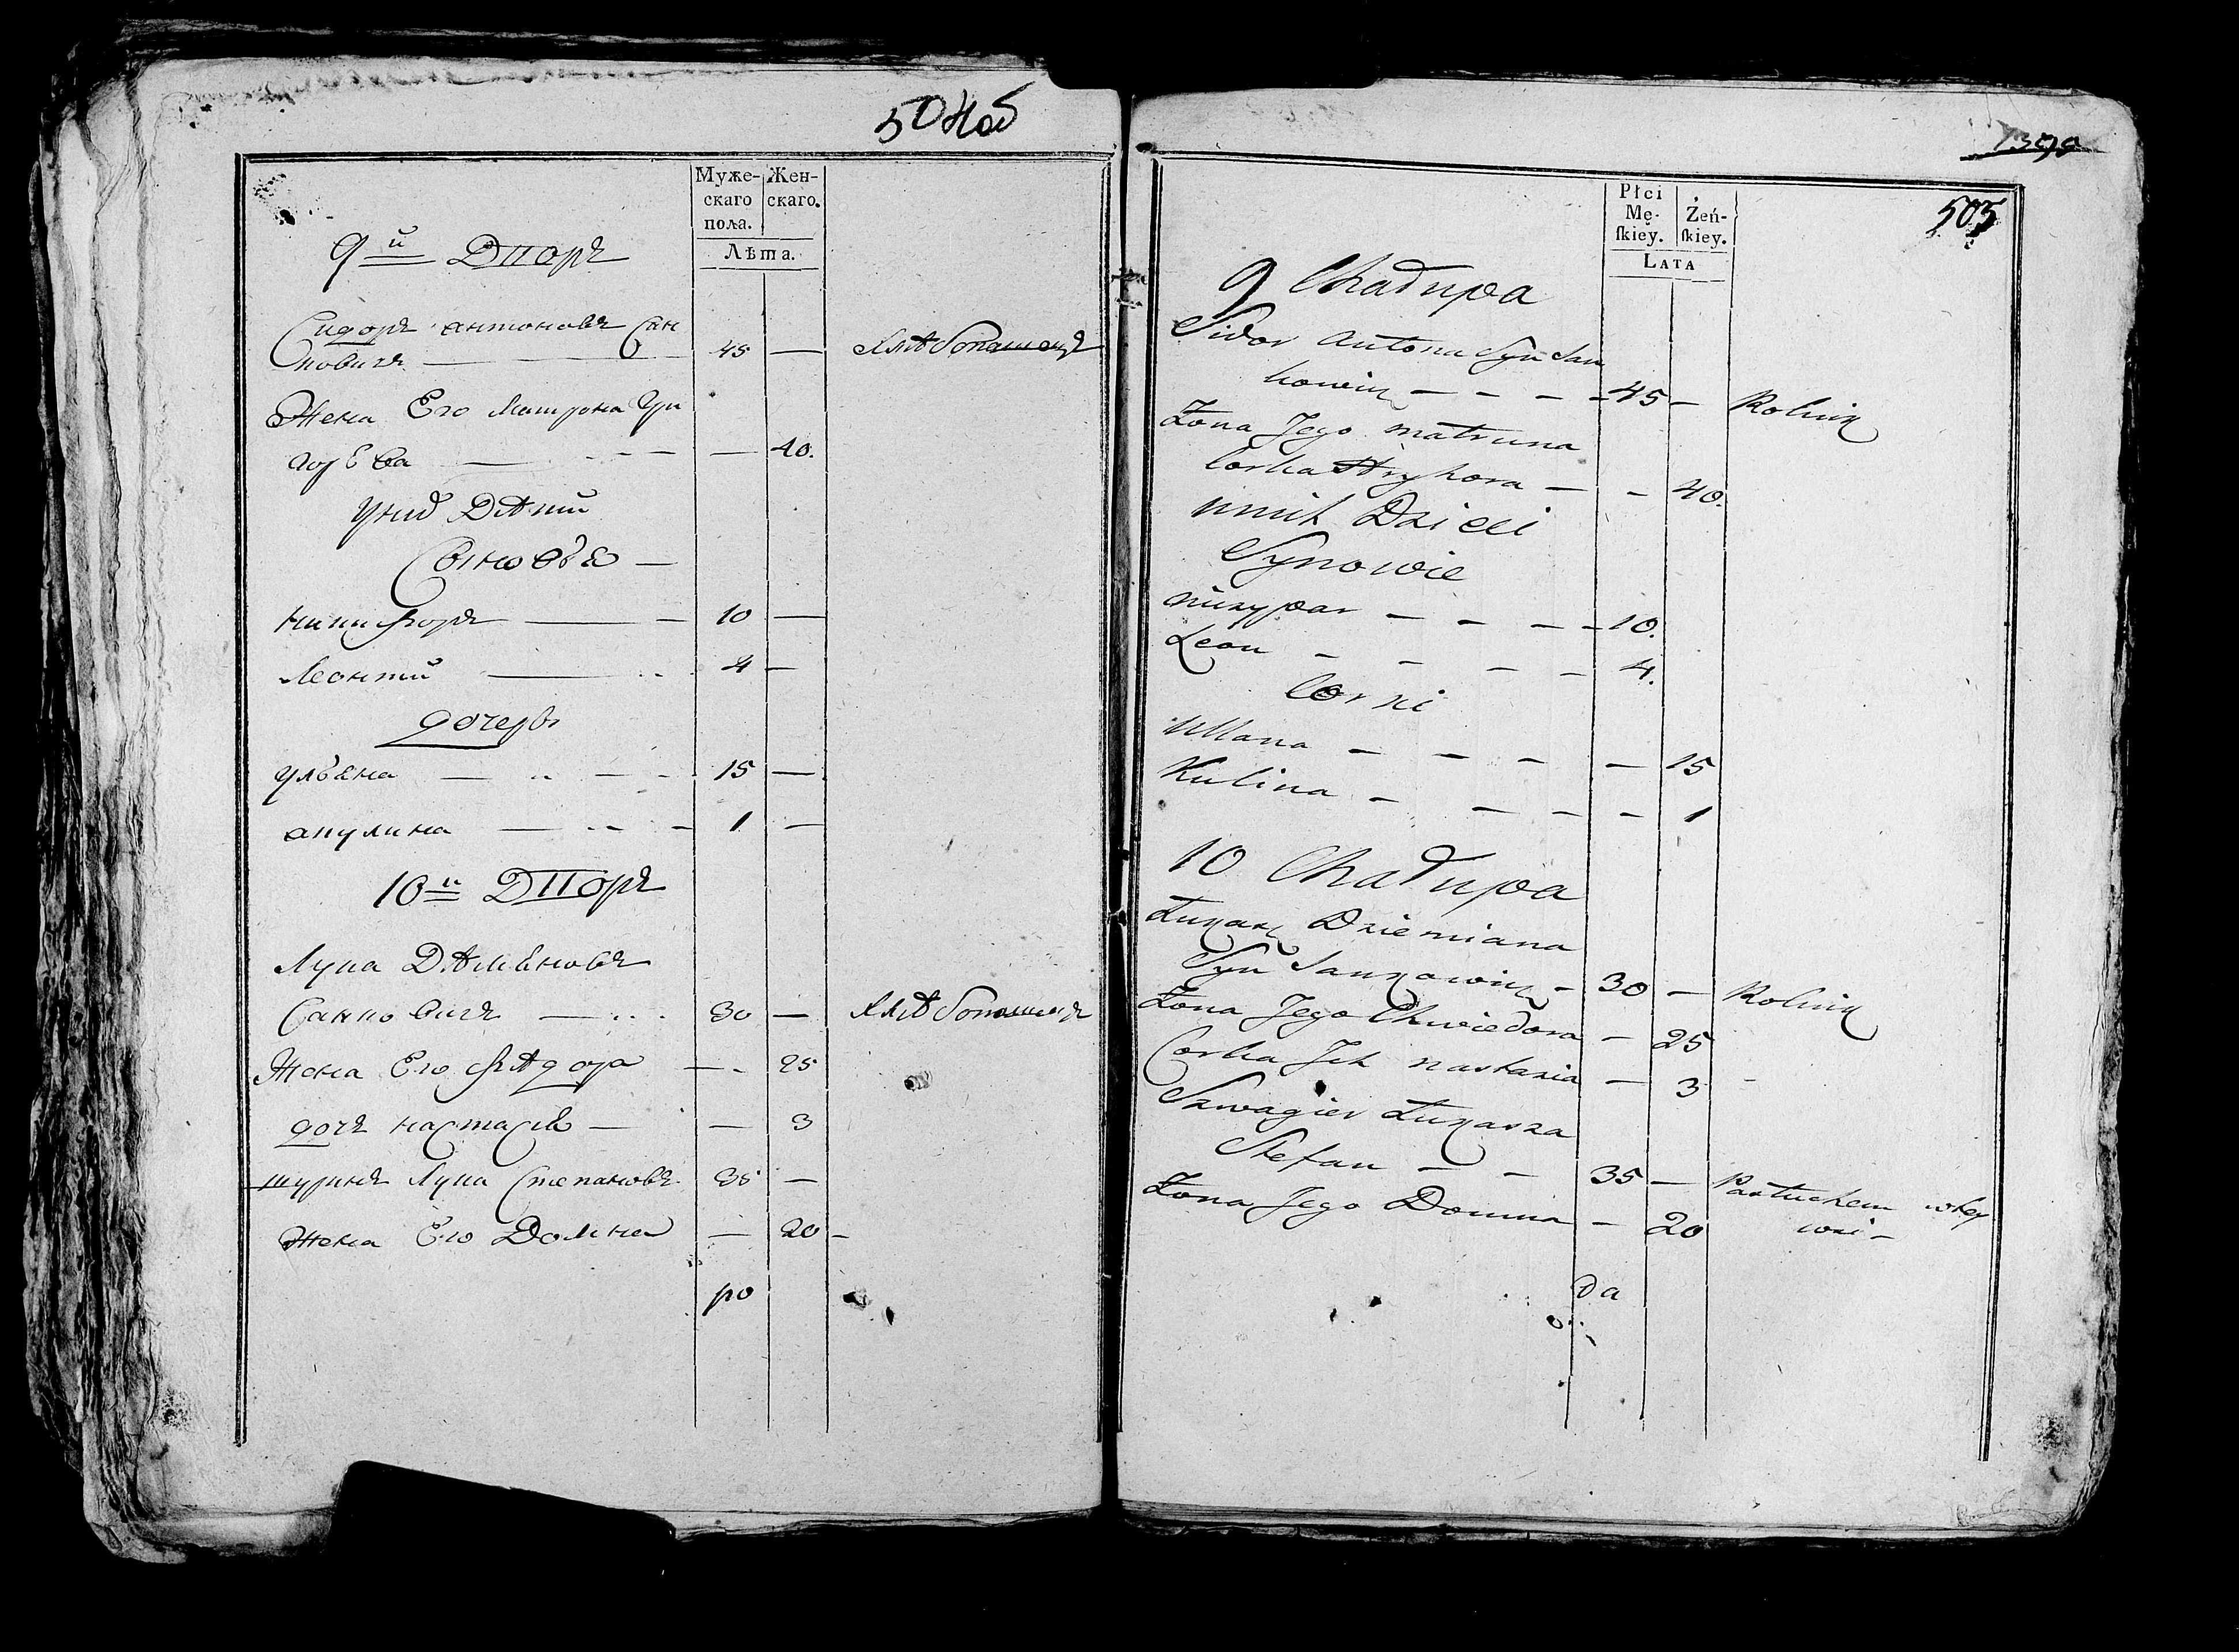 504об
Муже-
скаго
пола.
Жен-
скаго.
Лѣта.
9й Дворъ
Сидоръ Антоновъ Сан
ковичъ — 45 — хлѣбопашецъ
Жена Его Матрона Гри
горьева — — 40.
У нихъ Дѣти
Сыновья —
Никифоръ — 10 —
Леонтий — 4 —
дочерь
Ульяна — 15 —
Акулина — 1 —
10й Дворъ
Лука Дѣмьяновъ
Санковичъ — 30 — хлѣбопашецъ
Жена Его Фѣдора — 25
дочь Настасья — — 3
шуринъ Лука Степановъ 35 —
Жена Его Домна — 20 —
ро
1399
505
Płci
Mę-
ſkiey.
Żeń-
ſkiey.
LATA
9 Chałupa
Sidor Antona Syn San
kowicz — — — 45 — Rolnik
Żona Jego Matruna
Corka Hryhora — — 40.
u nich Dzieci
Synowie
Niczypar — — — 10.
Leon — — — — 4.
Corki
Ullana — — — — 15
Kulina — — — — 1
10 Chałupa
Łukasz Dziemiana
Syn Sankowicz — 30 — Rolnik
Żona Jego Chwiedora — 25
Corka Jch Nastazia — 3 -
Szwagier Łukasza
Stefan — — 35 — Pastuchem wtey
Żona Jego Domna — 20 wsi —
da